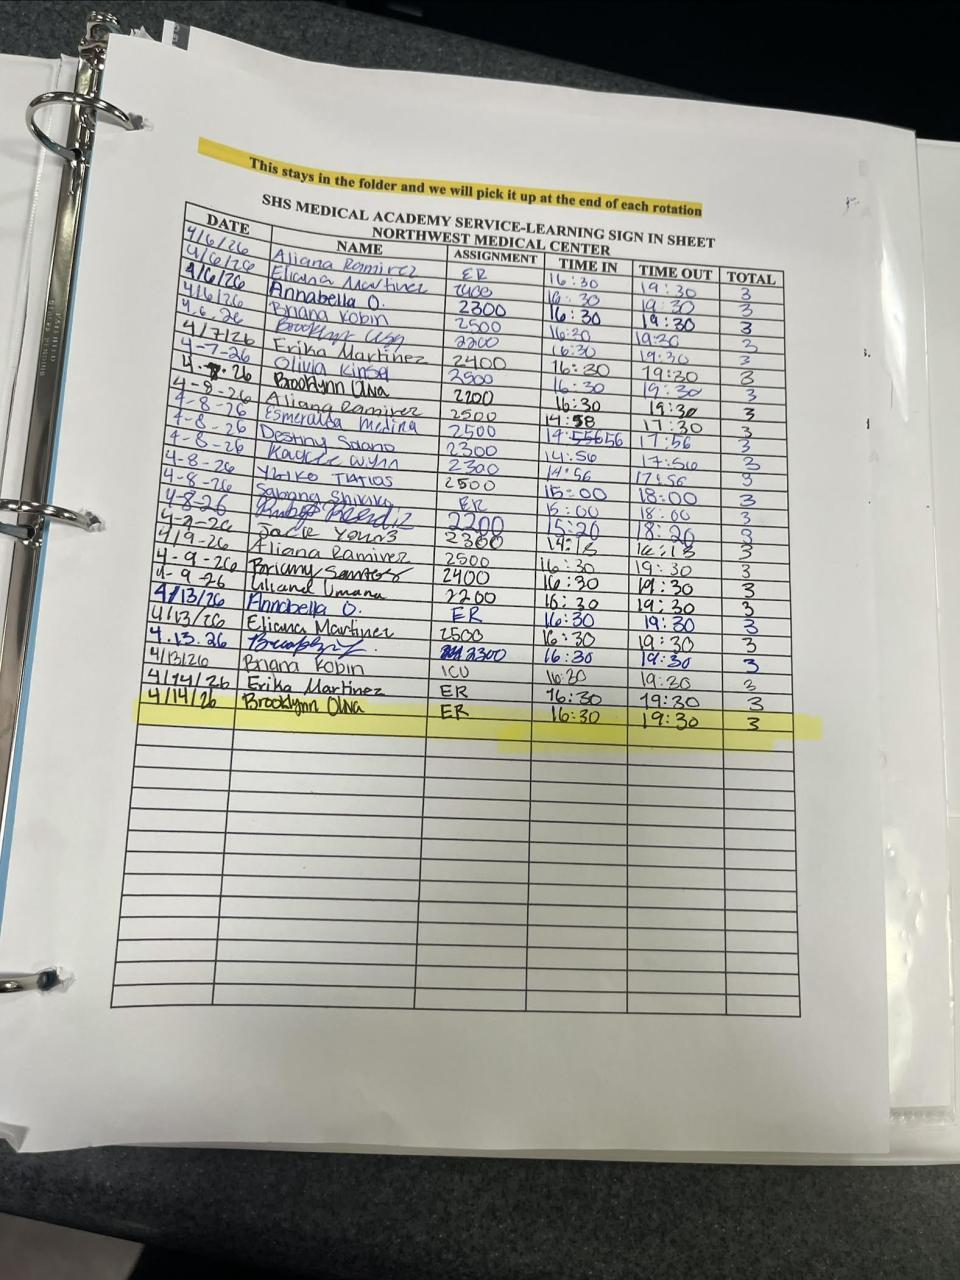 This stays in the folder and we will pick it up at the end of each rotation
SHS MEDICAL ACADEMY SERVICE-LEARNING SIGN IN SHEET
NORTHWEST MEDICAL CENTER
DATE NAME ASSIGNMENT TIME IN TIME OUT TOTAL
4/6/26 Aliana Ramirez ER 16:30 19:30 3
4/6/26 Eliana Martinez 2400 16:30 19:30 3
4/6/26 Annabella O. 2300 16:30 19:30 3
4/6/26 Briana Robin 2500 16:30 19:30 3
4.6.26 Brooklyn 2200 16:30 19:30 3
4/7/26 Erika Martinez 2400 16:30 19:30 3
4-7-26 Olivia 2500 16:30 19:30 3
26 Brooklynn 2200 16:30 19:30 3
4-8-26 Aliana Ramirez 2500 14:58 17:30 3
4-8-26 Esmeralda Medina 2500 17:56 3
4-8-26 Destiny Solano 2300 14:56 17:56 3
4-8-26 Wynn 2300 14:56 17:56 3
4-8-26 2500 15:00 18:00 3
4-8-26 ER 15:00 18:00 3
4-8-26 2200 15:20 18:20 3
Jacie Young 2300 3
4/9-26 Aliana Ramirez 2500 16:30 19:30 3
4-9-26 Briany Santos 2400 16:30 19:30 3
4-9-26 Umana 2200 16:30 19:30 3
4/13/26 Annabella O. ER 16:30 19:30 3
4/13/26 Eliana Martinez 2500 16:30 19:30 3
4.13.26 2300 16:30 19:30 3
4/13/26 Briana Robin ICU 16:30 19:30 3
4/14/26 Erika Martinez ER 16:30 19:30 3
4/14/26 Brooklynn ER 16:30 19:30 3